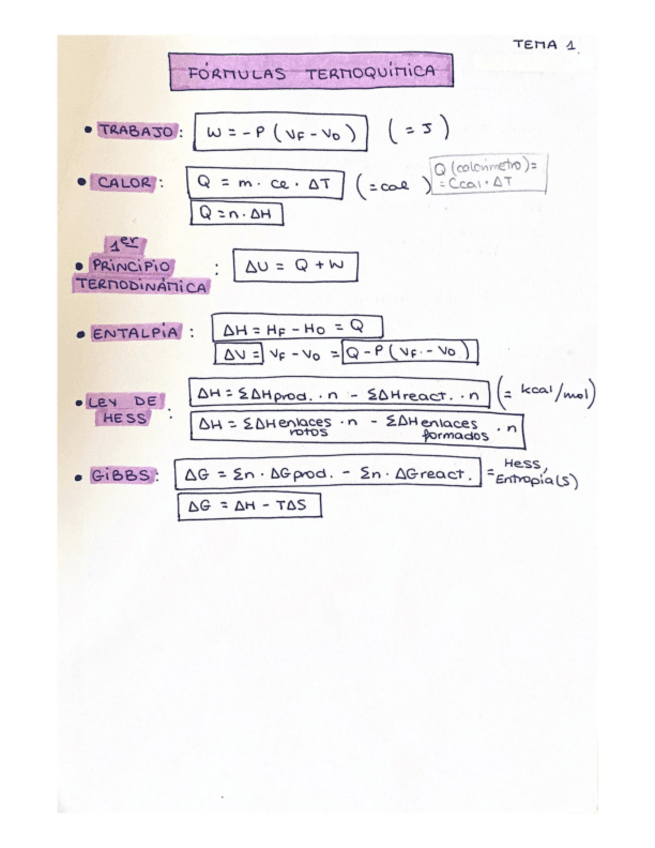 TEMA 1
FÓRMULAS TERMOQUÍMICA
• TRABAJO: W = -P (VF - VO) (= J)
• CALOR: Q = m · ce · ΔT (= cal)
Q (calorímetro) =
= Ccal · ΔT
Q = n · ΔH
1er
• PRINCIPIO : ΔU = Q + W
TERMODINÁMICA
• ENTALPÍA : ΔH = HF - HO = Q
ΔV = VF - VO = Q - P (VF - VO)
• LEY DE HESS : ΔH = ΣΔHprod. · n - ΣΔHreact. · n (= kcal/mol)
ΔH = ΣΔHenlaces rotos · n - ΣΔHenlaces formados · n
• GIBBS: ΔG = Σn · ΔGprod. - Σn · ΔGreact. = Hess, Entropía (S)
ΔG = ΔH - TΔS